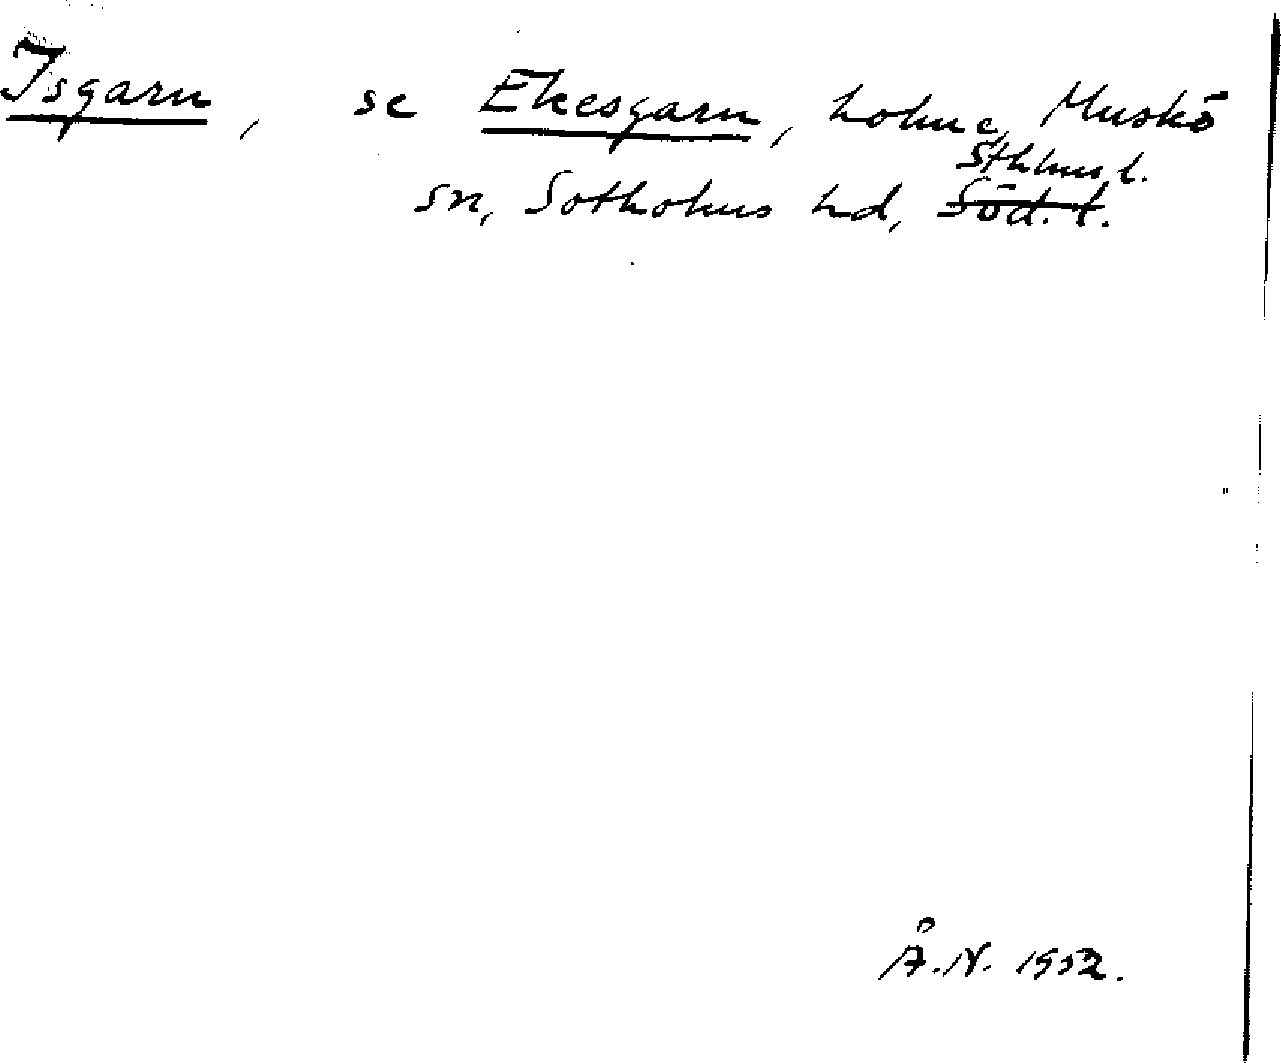 Isgarn, se Ekesgarn, holme, Muskö
Sthlms l.
sn, Sotholms hd, Söd. l.
Å.N. 1952.